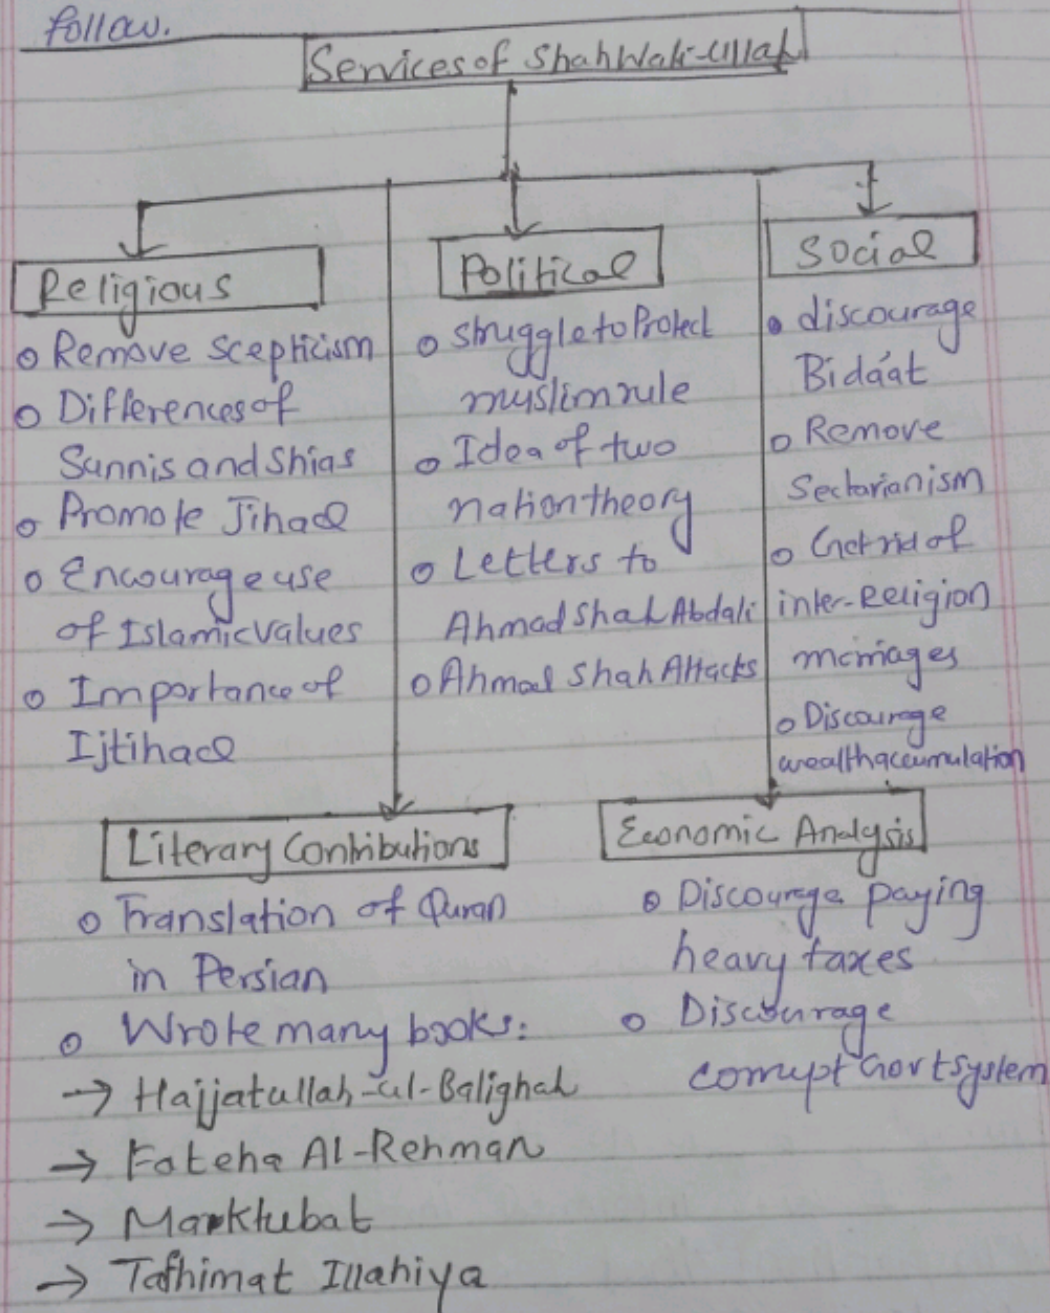 follow.
Services of Shah Wali-Ullah
Religious
o Remove Scepticism
o Differences of
Sunnis and Shias
o Promote Jihad
o Encourage use
of Islamic values
o Importance of
Ijtihad
Political
o struggle to Protect
muslim rule
o Idea of two
nation theory
o Letters to
Ahmad Shah Abdali
o Ahmad Shah Attacks
Social
o discourage
Bidáat
o Remove
Sectarianism
o Get rid of
inter-Religion
marriages
o Discourage
wealth accumulation
Literary Contributions
o Translation of Quran
in Persian
o Wrote many books:
→ Hajjatullah-ul-Balighah
→ Fateha Al-Rehman
→ Marktubat
→ Tafhimat Illahiya
Economic Analysis
o Discourage paying
heavy taxes
o Discourage
corrupt Govt system